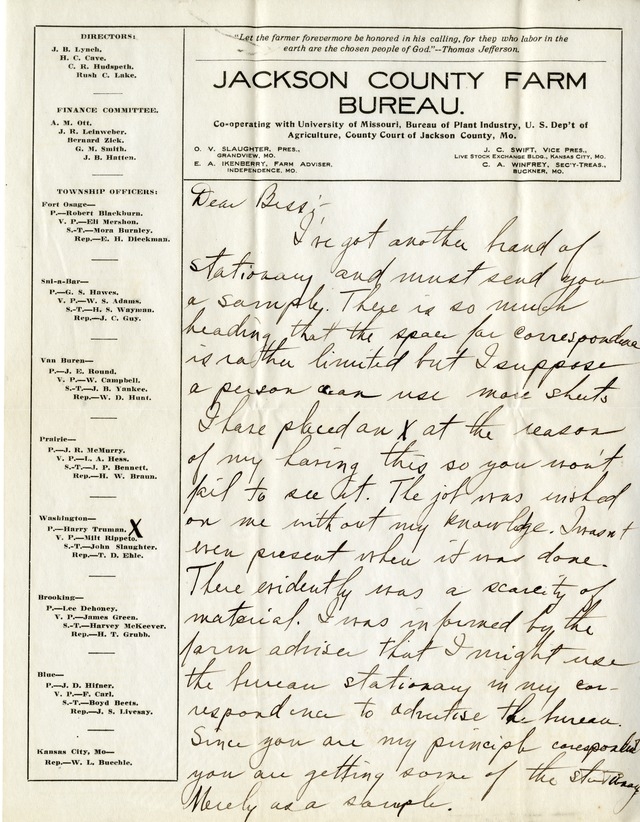 DIRECTORS:
J. B. Lynch.
H. C. Cave.
C. R. Hudspeth.
Rush C. Lake.
FINANCE COMMITTEE.
A. M. Ott.
J. R. Leinweber.
Bernard Zick.
G. M. Smith.
J. B. Hatten.
TOWNSHIP OFFICERS:
Fort Osage—
P.—Robert Blackburn.
V. P.—Eli Mershon.
S.-T.—Mora Burnley.
Rep.—E. H. Dieckman.
Sni-a-Bar—
P.—G. S. Hawes.
V. P.—W. S. Adams.
S.-T.—H. S. Wayman.
Rep.—J. C. Guy.
Van Buren—
P.—J. E. Round.
V. P.—W. Campbell.
S.-T.—J. B. Yankee.
Rep.—W. D. Hunt.
Prairie—
P.—J. R. McMurry.
V. P.—L. A. Hess.
S.-T.—J. P. Bennett.
Rep.—H. W. Braun.
Washington—
P.—Harry Truman. X
V. P.—Milt Rippeto.
S.-T.—John Slaughter.
Rep.—T. D. Ehle.
Brooking—
P.—Lee Dehoney.
V. P.—James Green.
S.-T.—Harvey McKeever.
Rep.—H. T. Grubb.
Blue—
P.—J. D. Hifner.
V. P.—F. Carl.
S.-T.—Boyd Beets.
Rep.—J. S. Livesay.
Kansas City, Mo—
Rep.—W. L. Buechle.
"Let the farmer forevermore be honored in his calling, for they who labor in the
earth are the chosen people of God."--Thomas Jefferson.
JACKSON COUNTY FARM
BUREAU.
Co-operating with University of Missouri, Bureau of Plant Industry, U. S. Dep't of
Agriculture, County Court of Jackson County, Mo.
O. V. SLAUGHTER, PRES.,
GRANDVIEW, MO.
E. A. IKENBERRY, FARM ADVISER,
INDEPENDENCE, MO.
J. C. SWIFT, VICE PRES.,
LIVE STOCK EXCHANGE BLDG., KANSAS CITY, MO.
C. A. WINFREY, SEC'Y-TREAS.,
BUCKNER, MO.
Dear Bess;-
I've got another brand of
stationary and must send you
a sample. There is so much
heading that the space for correspondence
is rather limited but I suppose
a person can use more sheets
I have placed an X at the reason
of my having this so you won't
fail to see it. The job was wished
on me without my knowledge. I wasn't
even present when it was done.
There evidently was a scarcity of
material. I was informed by the
farm adviser that I might use
the bureau stationary in my cor-
respondence to advertise the bureau.
Since you are my principle
you are getting some of the stationary
Merely as a sample.